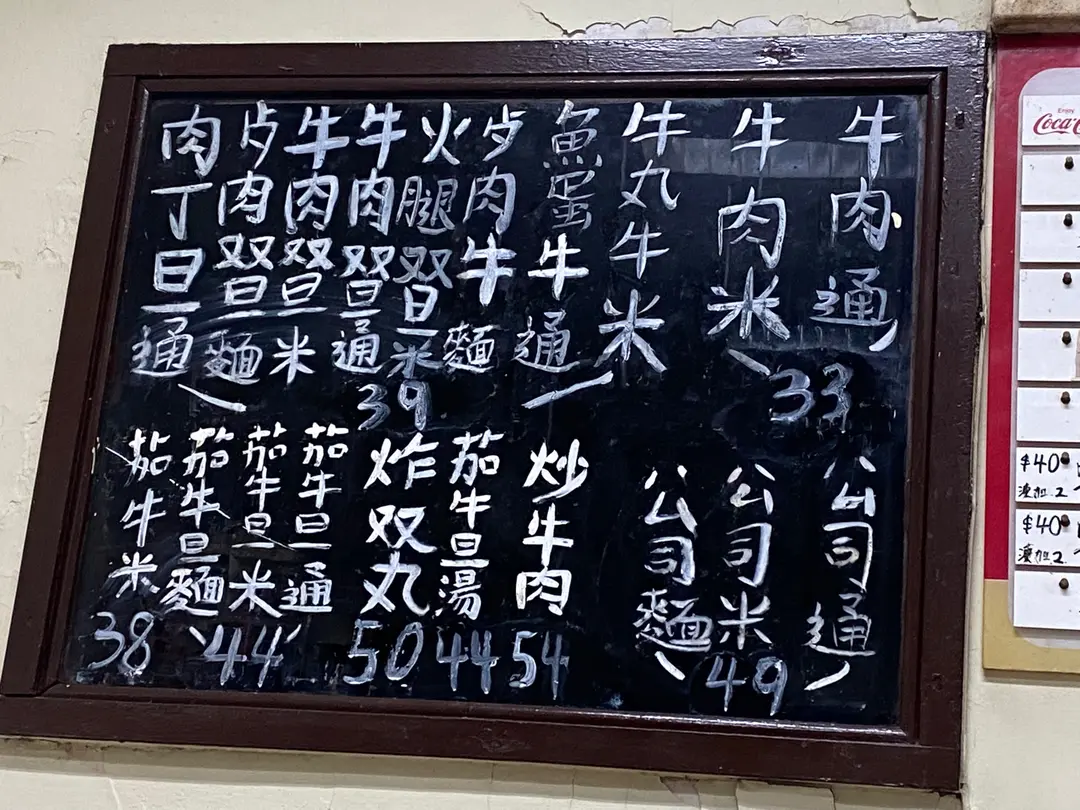 牛肉通
牛肉米
牛丸牛米
33
魚蛋牛通
歺肉牛麵
火腿双旦米
牛肉双旦通
牛肉双旦米
歺肉双旦麵
肉丁旦通
39
公司通
公司米
公司麵
49
炒牛肉
54
茄牛旦湯
44
炸双丸
50
茄牛旦通
茄牛旦米
茄牛旦麵
44
茄牛米
38
Enjoy
$40
凍加2
$40
凍加2